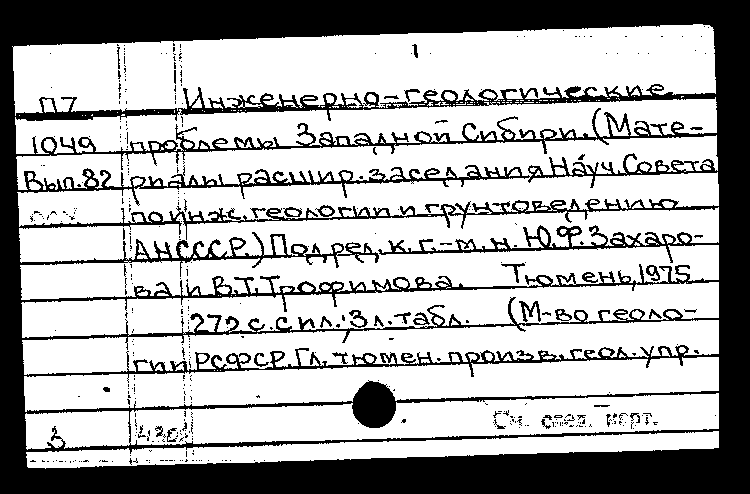 1
П7 Инженерно-геологические
1049 проблемы Западной Сибири. (Мате-
Вып.82 риалы расшир. заседания Науч. Совета
по инж. геологии и грунтоведению
АН СССР.) Под ред. к. г.-м. н. Ю.Ф. Захаро-
ва и В.Т. Трофимова. Тюмень, 1975
272 с. с ил.; 3 л. табл. (М-во геоло-
гии РСФСР. Гл. тюмен. произв. геол. упр.
3
См. след. карт.